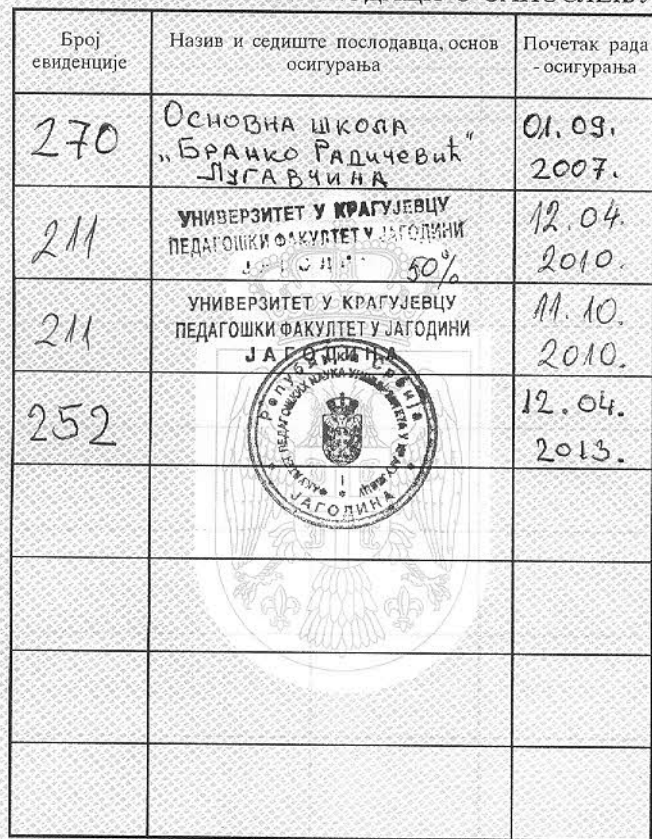 Број
евиденције
Назив и седиште послодавца, основ
осигурања
Почетак рада
- осигурања
270
ОСНОВНА ШКОЛА
„БРАНКО РАДИЧЕВИЋ"
ЛУГАВЧИНА
01.09.
2007.
211
УНИВЕРЗИТЕТ У КРАГУЈЕВЦУ
ПЕДАГОШКИ ФАКУЛТЕТ У ЈАГОДИНИ
50%
12.04.
2010.
211
УНИВЕРЗИТЕТ У КРАГУЈЕВЦУ
ПЕДАГОШКИ ФАКУЛТЕТ У ЈАГОДИНИ
ЈАГОДИНА
11.10.
2010.
252
Република Србија
ФАКУЛТЕТ ПЕДАГОШКИХ НАУКА УНИВЕРЗИТЕТА У КРАГУЈЕВЦУ
I
ЈАГОДИНА
12.04.
2013.